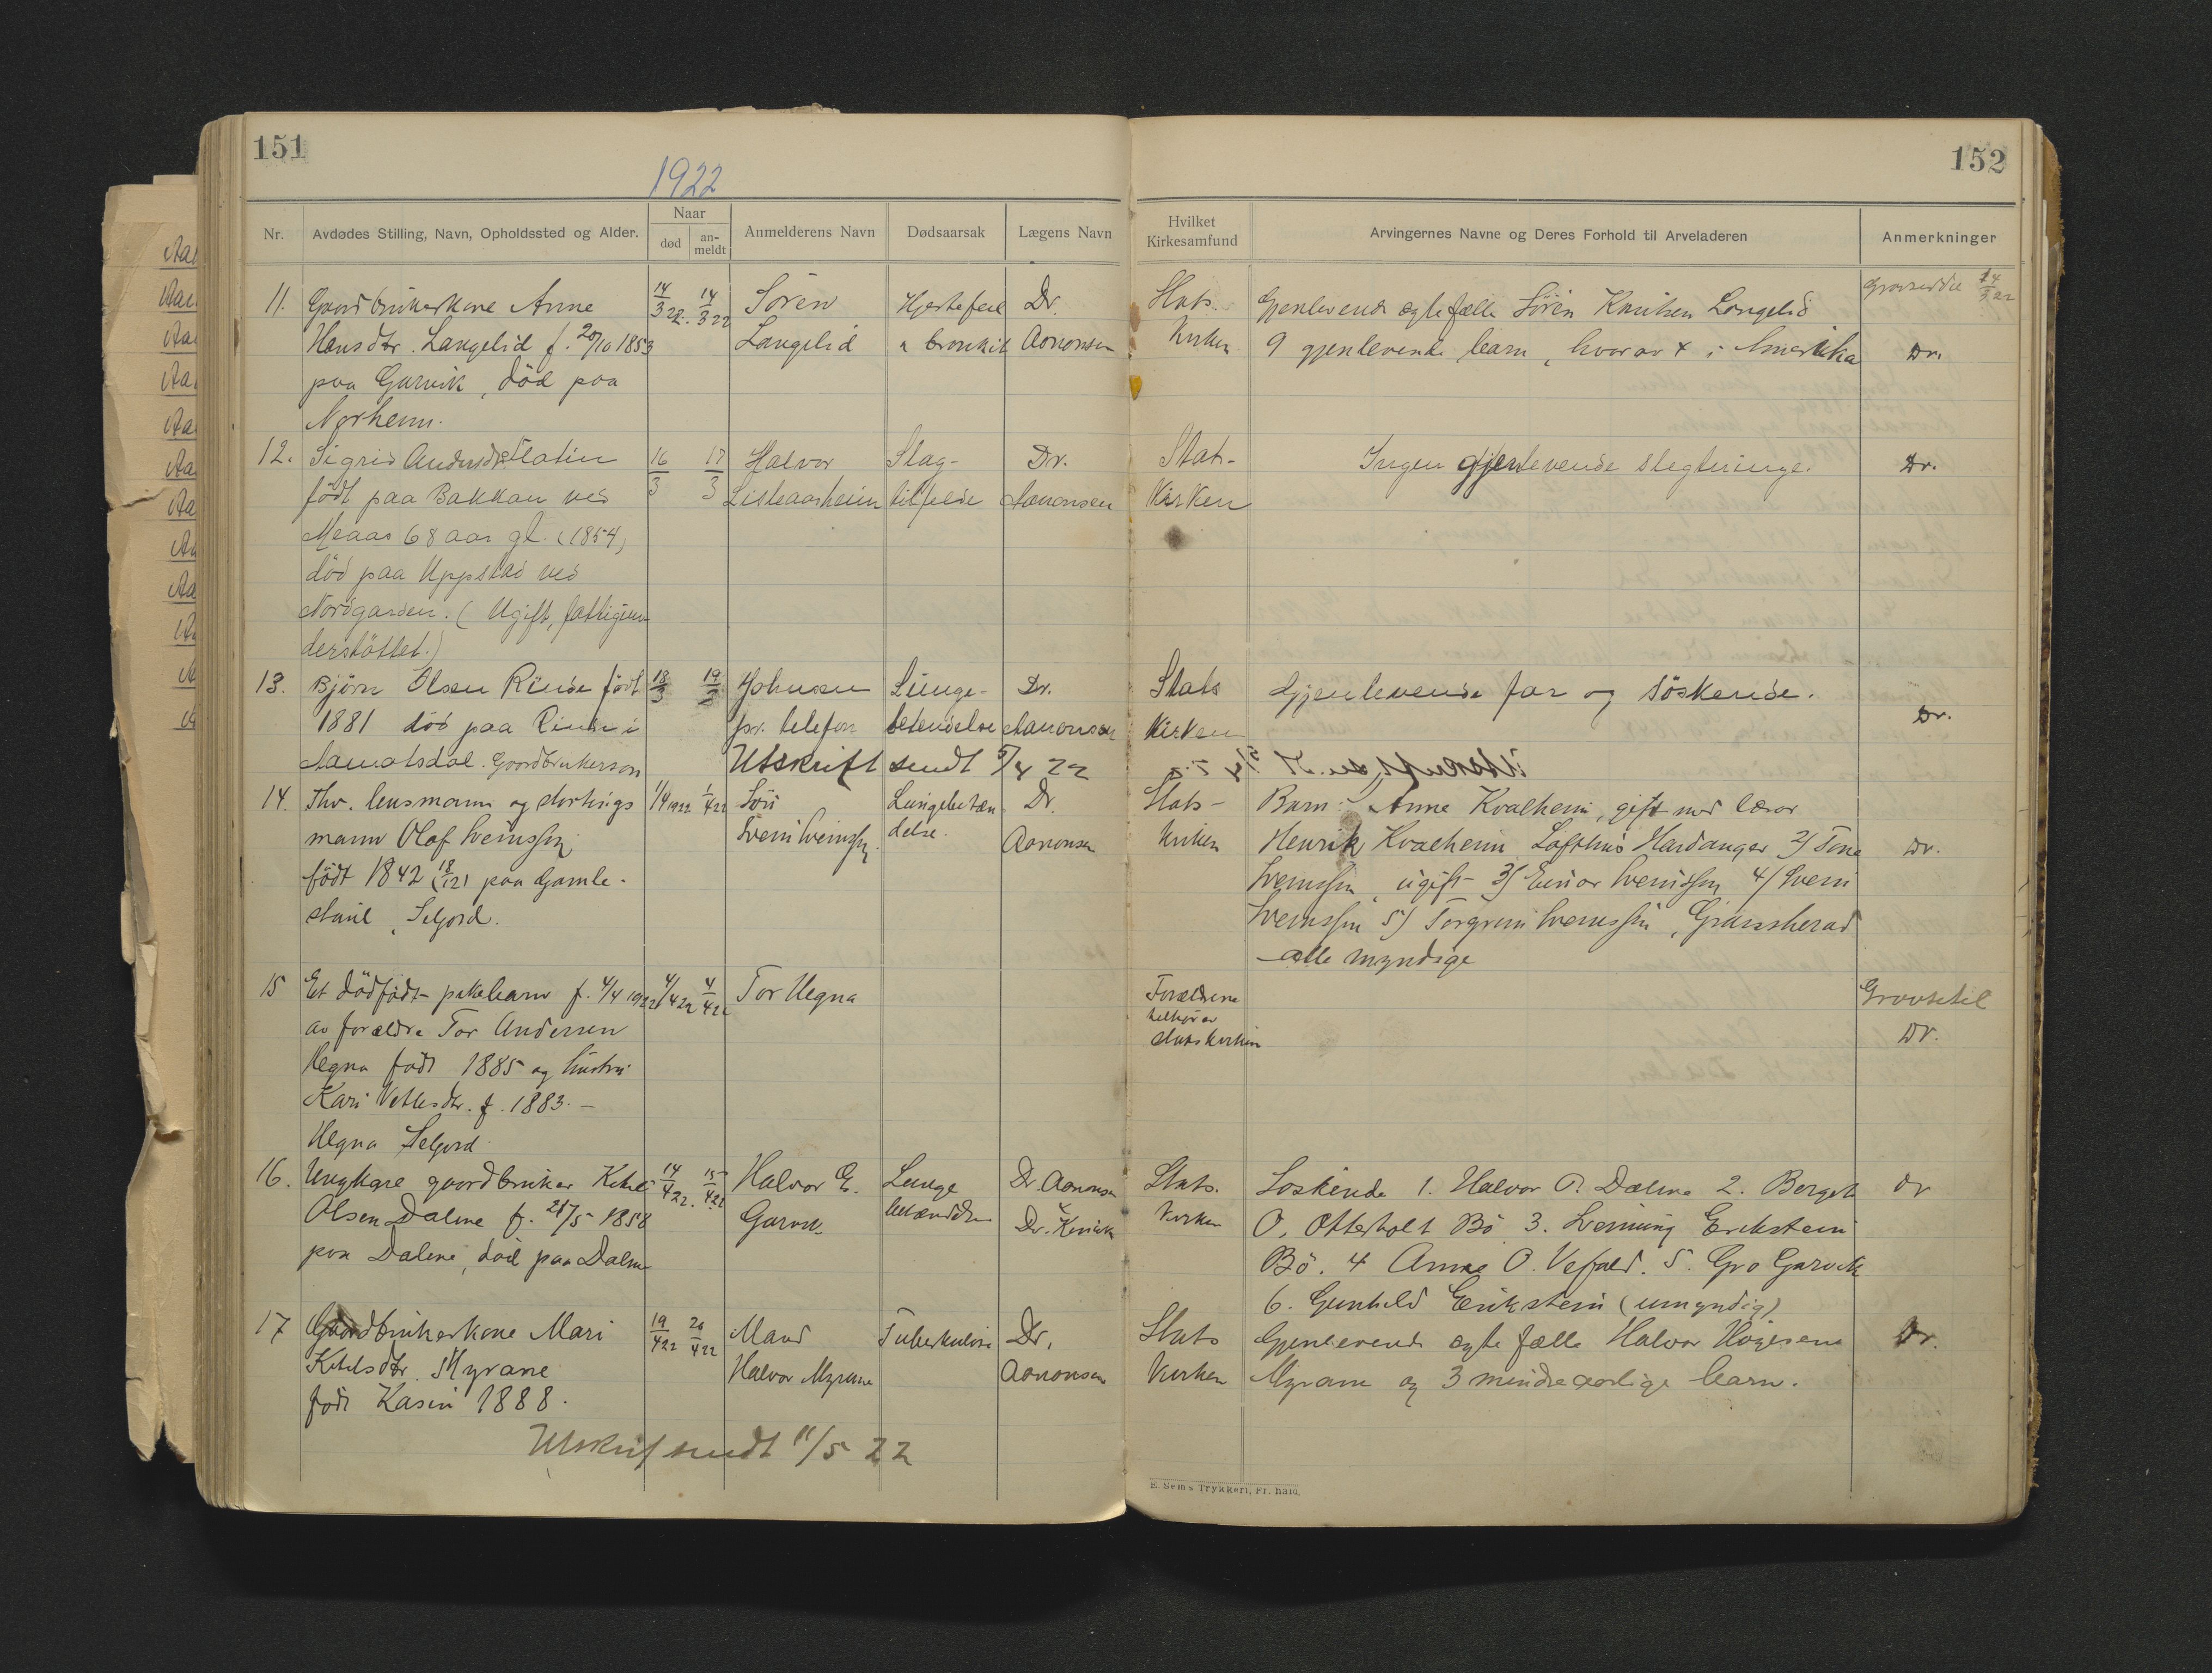 151
1922
Nr.
Avdødes Stilling, Navn, Opholdssted og Alder.
Naar
død
an-
meldt
Anmelderens Navn
Dødsaarsak
Lægens Navn
11.
Gaardbrukerkone Anne
Hansdtr. Langelid f. 20/10 1853
paa Garvik, død paa
Norheim.
14/3 22.
14/3 22
Søren
Langelid
Hjertefeil
& bronkit
Dr.
Aanonsen
12.
Sigrid Andersdtr Flatin
født paa Bakkan ved
68 aar gl. (1854)
død paa Uppstad ved
Nordgarden. (Ugift, fattigun
derstøttet.)
16/3
17/3
Halvor
Slag-
tilfelde
Dr.
Aanonsen
13.
Bjørn Olsen Rinde født
1881 død paa Rinde i
Aamotsdal. Gaardbrukersøn
18/3
19/3
Johnsen
pr. telefon
Lunge-
betendelse
Dr.
Aanonsen
Utskrift sendt 5/4 22
14.
Fhv. lensmann og stortings
mann Olaf Sveinssøn
født 1842 (18/12) paa Gamle-
stuil, Seljord.
1/4 1922
1/4 22
Søn
Svein Sveinssøn
Lungebetæn
delse.
Dr.
Aanonsen
15
Et dødfødt pikebarn f. 4/4 1922
av forældre Tor Andersen
Hegna født 1885 og hustru
Kari Vetlesdtr. f. 1883. –
Hegna Seljord
4/4 22
4/4 22
Tor Hegna
16.
Ungkare gaardbruker Ketil
Olsen Dalene f. 1858
paa Dalene, død paa Dalene
14/4 22.
15/4 22
Halvor E.
Garvik
Lunge
betændelse
Dr. Aanonsen
17
Gaardbrukerkone Mari
Ketilsdtr. Myrane
født Kasin 1888.
19/4 22
20/4 22
Mand
Halvor Myrane
Tuberkulose
Dr.
Aanonsen
Utskrift sendt 11/5 22
152
Hvilket
Kirkesamfund
Arvingernes Navne og Deres Forhold til Arveladeren
Anmerkninger
Stats
kirken
Gjenlevende egtefælle Søren Knutsen Langelid
9 gjenlevende barn, hvorav 4 i Amerika
Gravseddel 14/3 22
Dr.
Stats-
kirken
Ingen gjenlevende slegtninge.
Dr.
Stats
kirken
Gjenlevende far og søskende.
Dr.
Stats-
kirken
Barn: 1) Anne Kvalheim, gift med lærer
Henrik Kvalheim Lofthus Hardanger 2) Tone
Sveinssøn ugift – 3) Einar Sveinssøn 4) Svein
Sveinssøn 5) Torgrim Sveinssøn, Gransherad
– alle myndige
Dr.
Forældrene
tilhører
statskirken
Dr.
Stats.
kirken
Søskende 1. Halvor O. Dalene 2. Berget
O. Otterholt Bø 3. Erikstein
Bø. 4 Anne O. Vefald. 5. Gro Garvik
6. Gunhild Erikstein (umyndig)
Dr
Stats
kirken
Gjenlevende egtefælle Halvor
Myrane og 3 mindreaarlige barn.
Dr.
E. Sem's Trykkeri, Fr. hald.